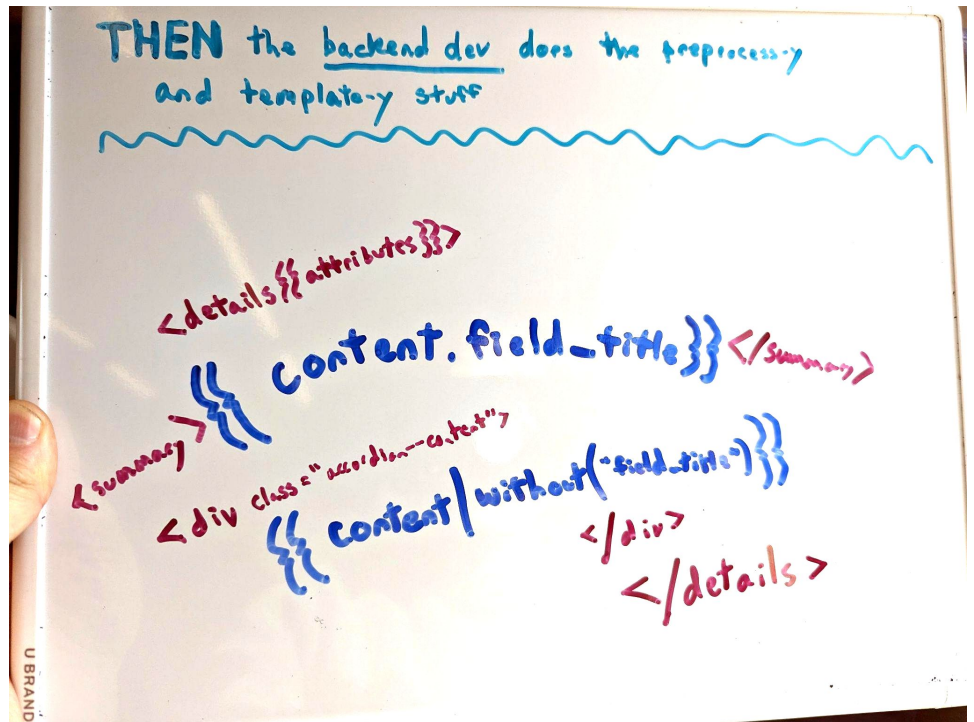 THEN the backend dev does the preprocess-y
and template-y stuff
<details{{attributes}}>
<summary>{{ content.field_title}}</summary>
<div class="accordion--content">
{{ content|without("field_title")}}
</div>
</details>
U BRAND